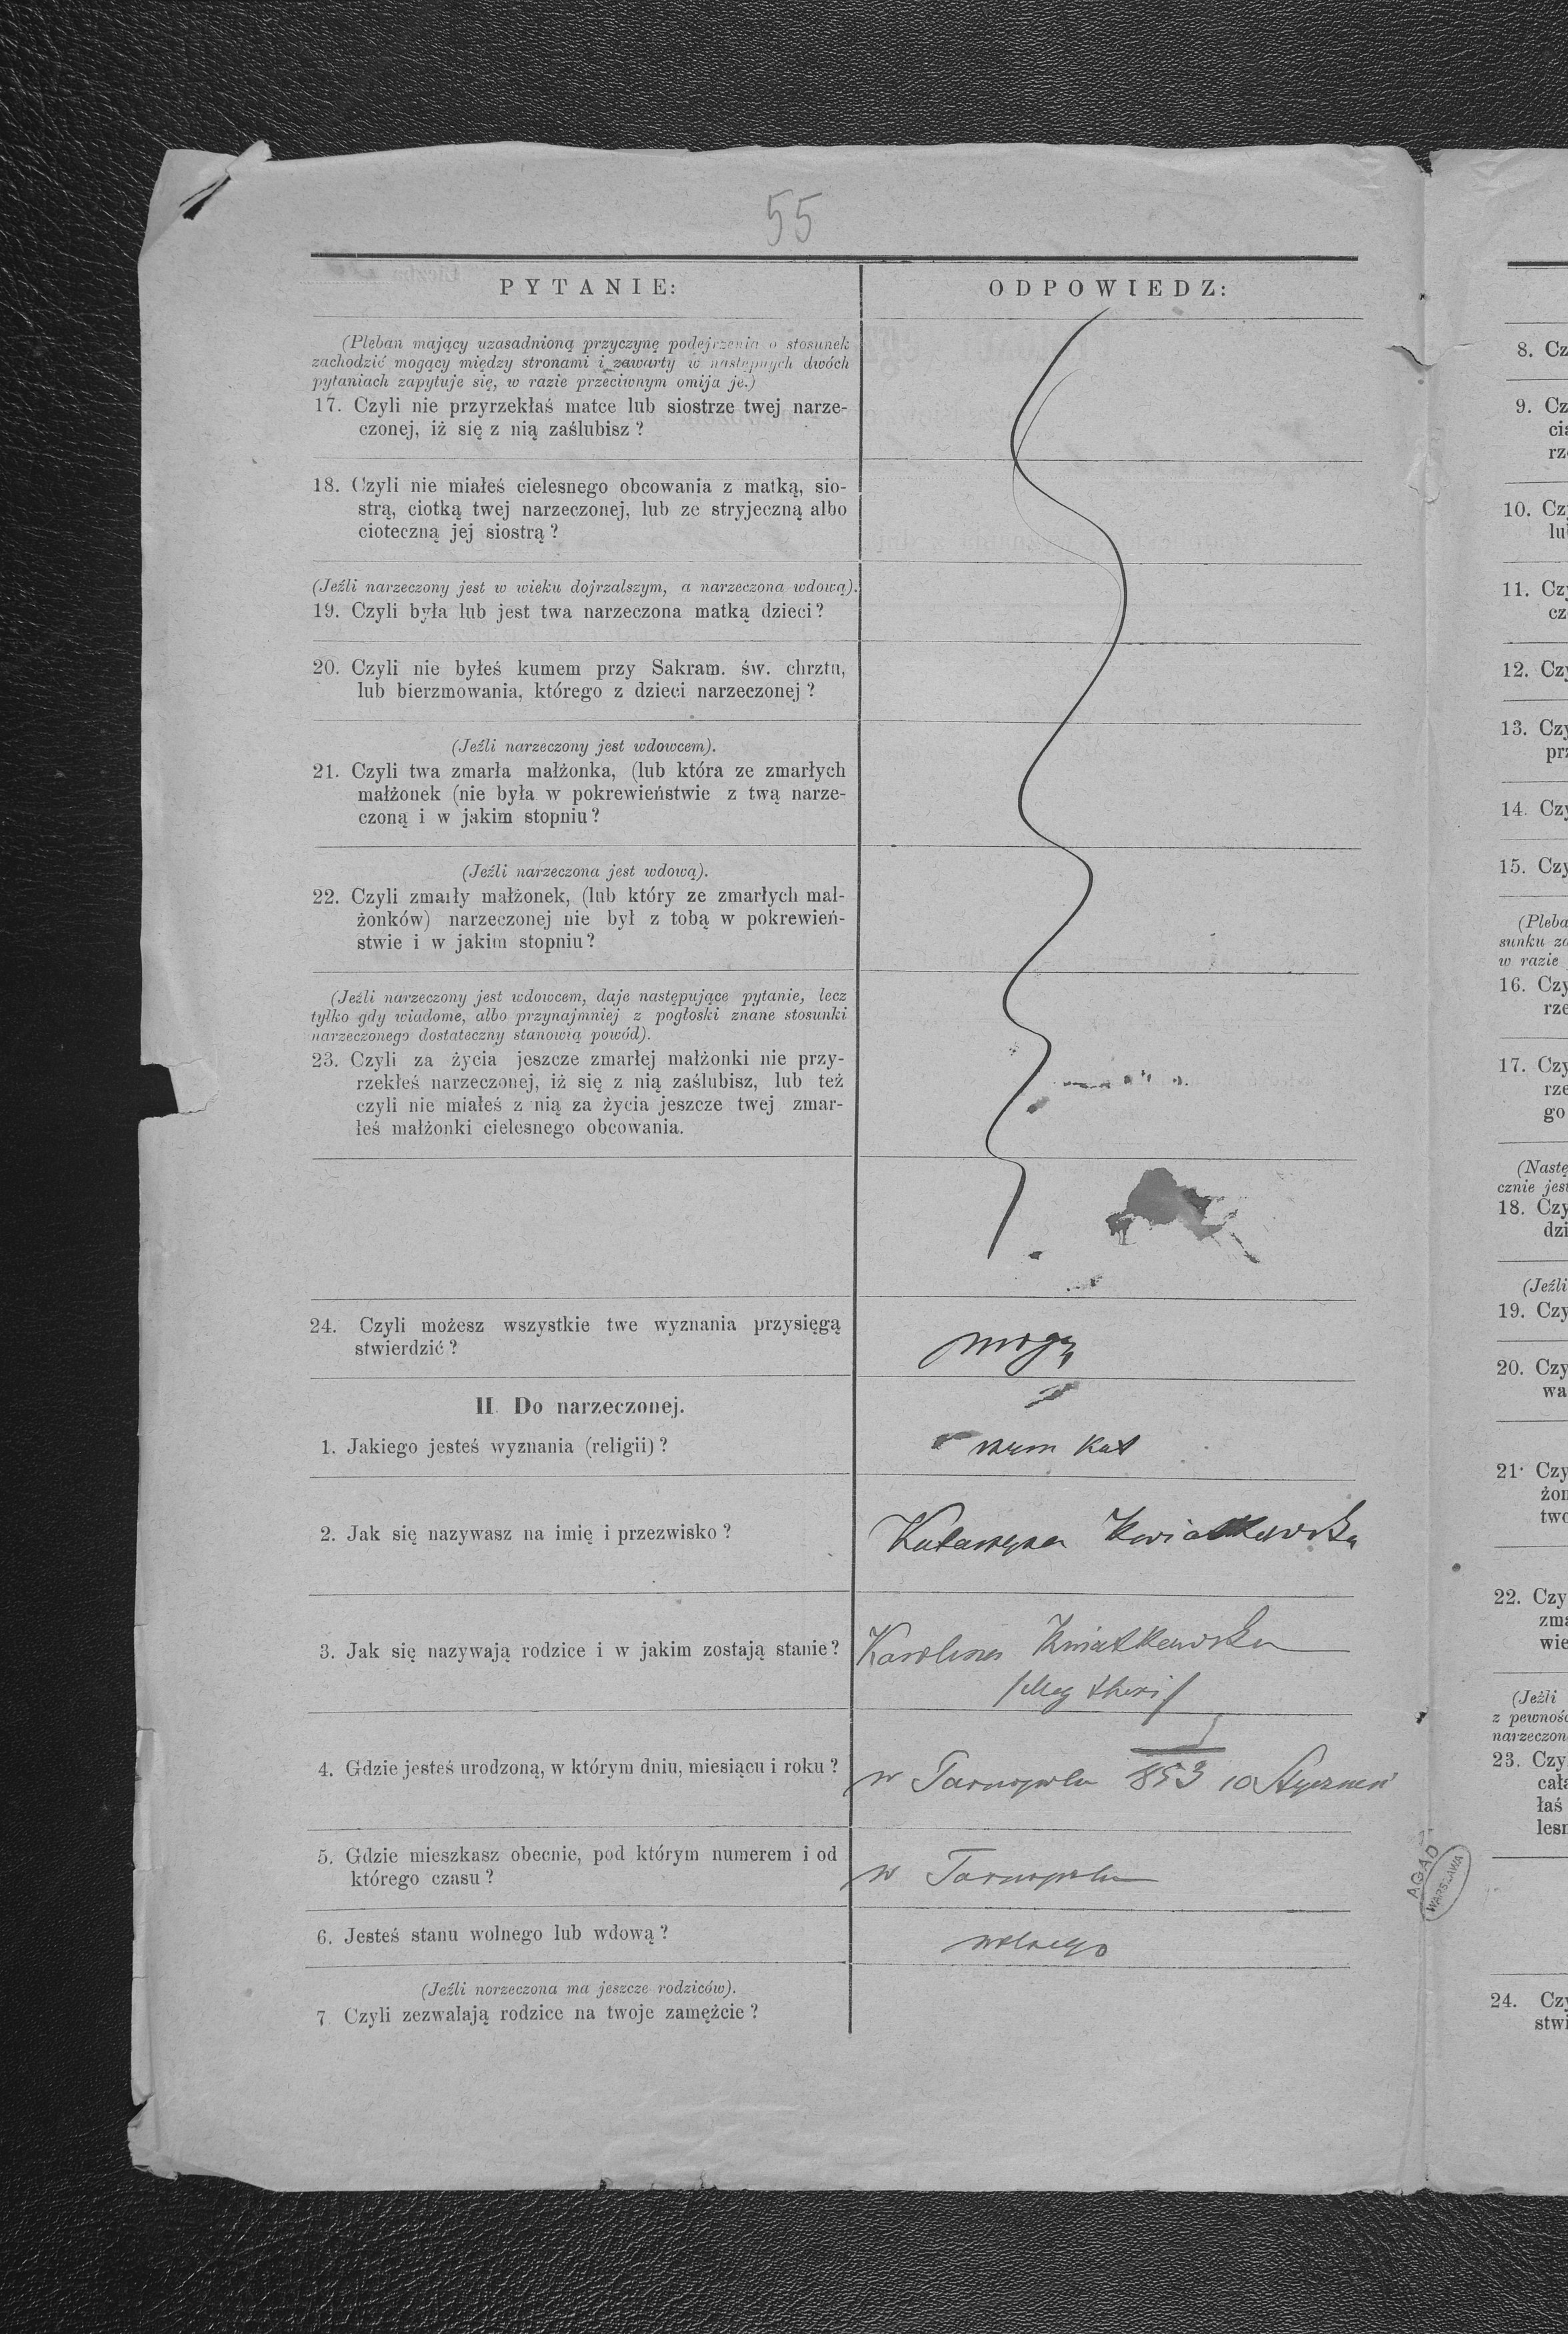 55
PYTANIE:
ODPOWIEDZ:
(Pleban mający uzasadnioną przyczynę podejrzenia o stosunek
zachodzić mogący między stronami i zawarty w następnych dwóch
pytaniach zapytuje się, w razie przeciwnym omija je.)
17. Czyli nie przyrzekłaś matce lub siostrze twej narze-
czonej, iż się z nią zaślubisz?
18. Czyli nie miałeś cielesnego obcowania z matką, sio-
strą, ciotką twej narzeczonej, lub ze stryjeczną albo
cioteczną jej siostrą?
(Jeźli narzeczony jest w wieku dojrzalszym, a narzeczona wdową).
19. Czyli była lub jest twa narzeczona matką dzieci?
20. Czyli nie byłeś kumem przy Sakram. św. chrztu,
lub bierzmowania, którego z dzieci narzeczonej?
(Jeźli narzeczony jest wdowcem).
21. Czyli twa zmarła małżonka, (lub która ze zmarłych
małżonek (nie była w pokrewieństwie z twą narze-
czoną i w jakim stopniu?
(Jeźli narzeczona jest wdową).
22. Czyli zmarły małżonek, (lub który ze zmarłych mał-
żonków) narzeczonej nie był z tobą w pokrewień-
stwie i w jakim stopniu?
(Jeźli narzeczony jest wdowcem, daje następujące pytanie, lecz
tylko gdy wiadome, albo przynajmniej z pogłoski znane stosunki
narzeczonego dostateczny stanowią powód).
23. Czyli za życia jeszcze zmarłej małżonki nie przy-
rzekłeś narzeczonej, iż się z nią zaślubisz, lub też
czyli nie miałeś z nią za życia jeszcze twej zmar-
łeś małżonki cielesnego obcowania.
24. Czyli możesz wszystkie twe wyznania przysięgą
stwierdzić?
mogę
II. Do narzeczonej.
1. Jakiego jesteś wyznania (religii)?
rzym kat
2. Jak się nazywasz na imię i przezwisko?
Katarzyna Kwiatkowska
3. Jak się nazywają rodzice i w jakim zostają stanie?
Karolina Kwiatkowska
4. Gdzie jesteś urodzoną, w którym dniu, miesiącu i roku?
w Tarnopolu 853 10 Styczeń
5. Gdzie mieszkasz obecnie, pod którym numerem i od
którego czasu?
w Tarnopolu
6. Jesteś stanu wolnego lub wdową?
wolnego
(Jeźli norzeczona ma jeszcze rodziców).
7 Czyli zezwalają rodzice na twoje zamężcie?
8. Cz
9. Cz
10. Cz
11. Cz
12. Cz
13. Cz
14. Cz
15. Czy
(Pleba
sunku zo
w razie
16. Czy
rze
17. Czy
rze
go
(Nastę
cznie jest
18. Czy
dzi
(Jeźli
19. Czy
20. Czy
wa
21. Czy
żon
two
22. Czy
zma
wie
(Jeźli
z pewnoś
narzeczon
23. Czy
cała
łaś
lesn
AGAD
WARSZAWA
24. Czy
stwi